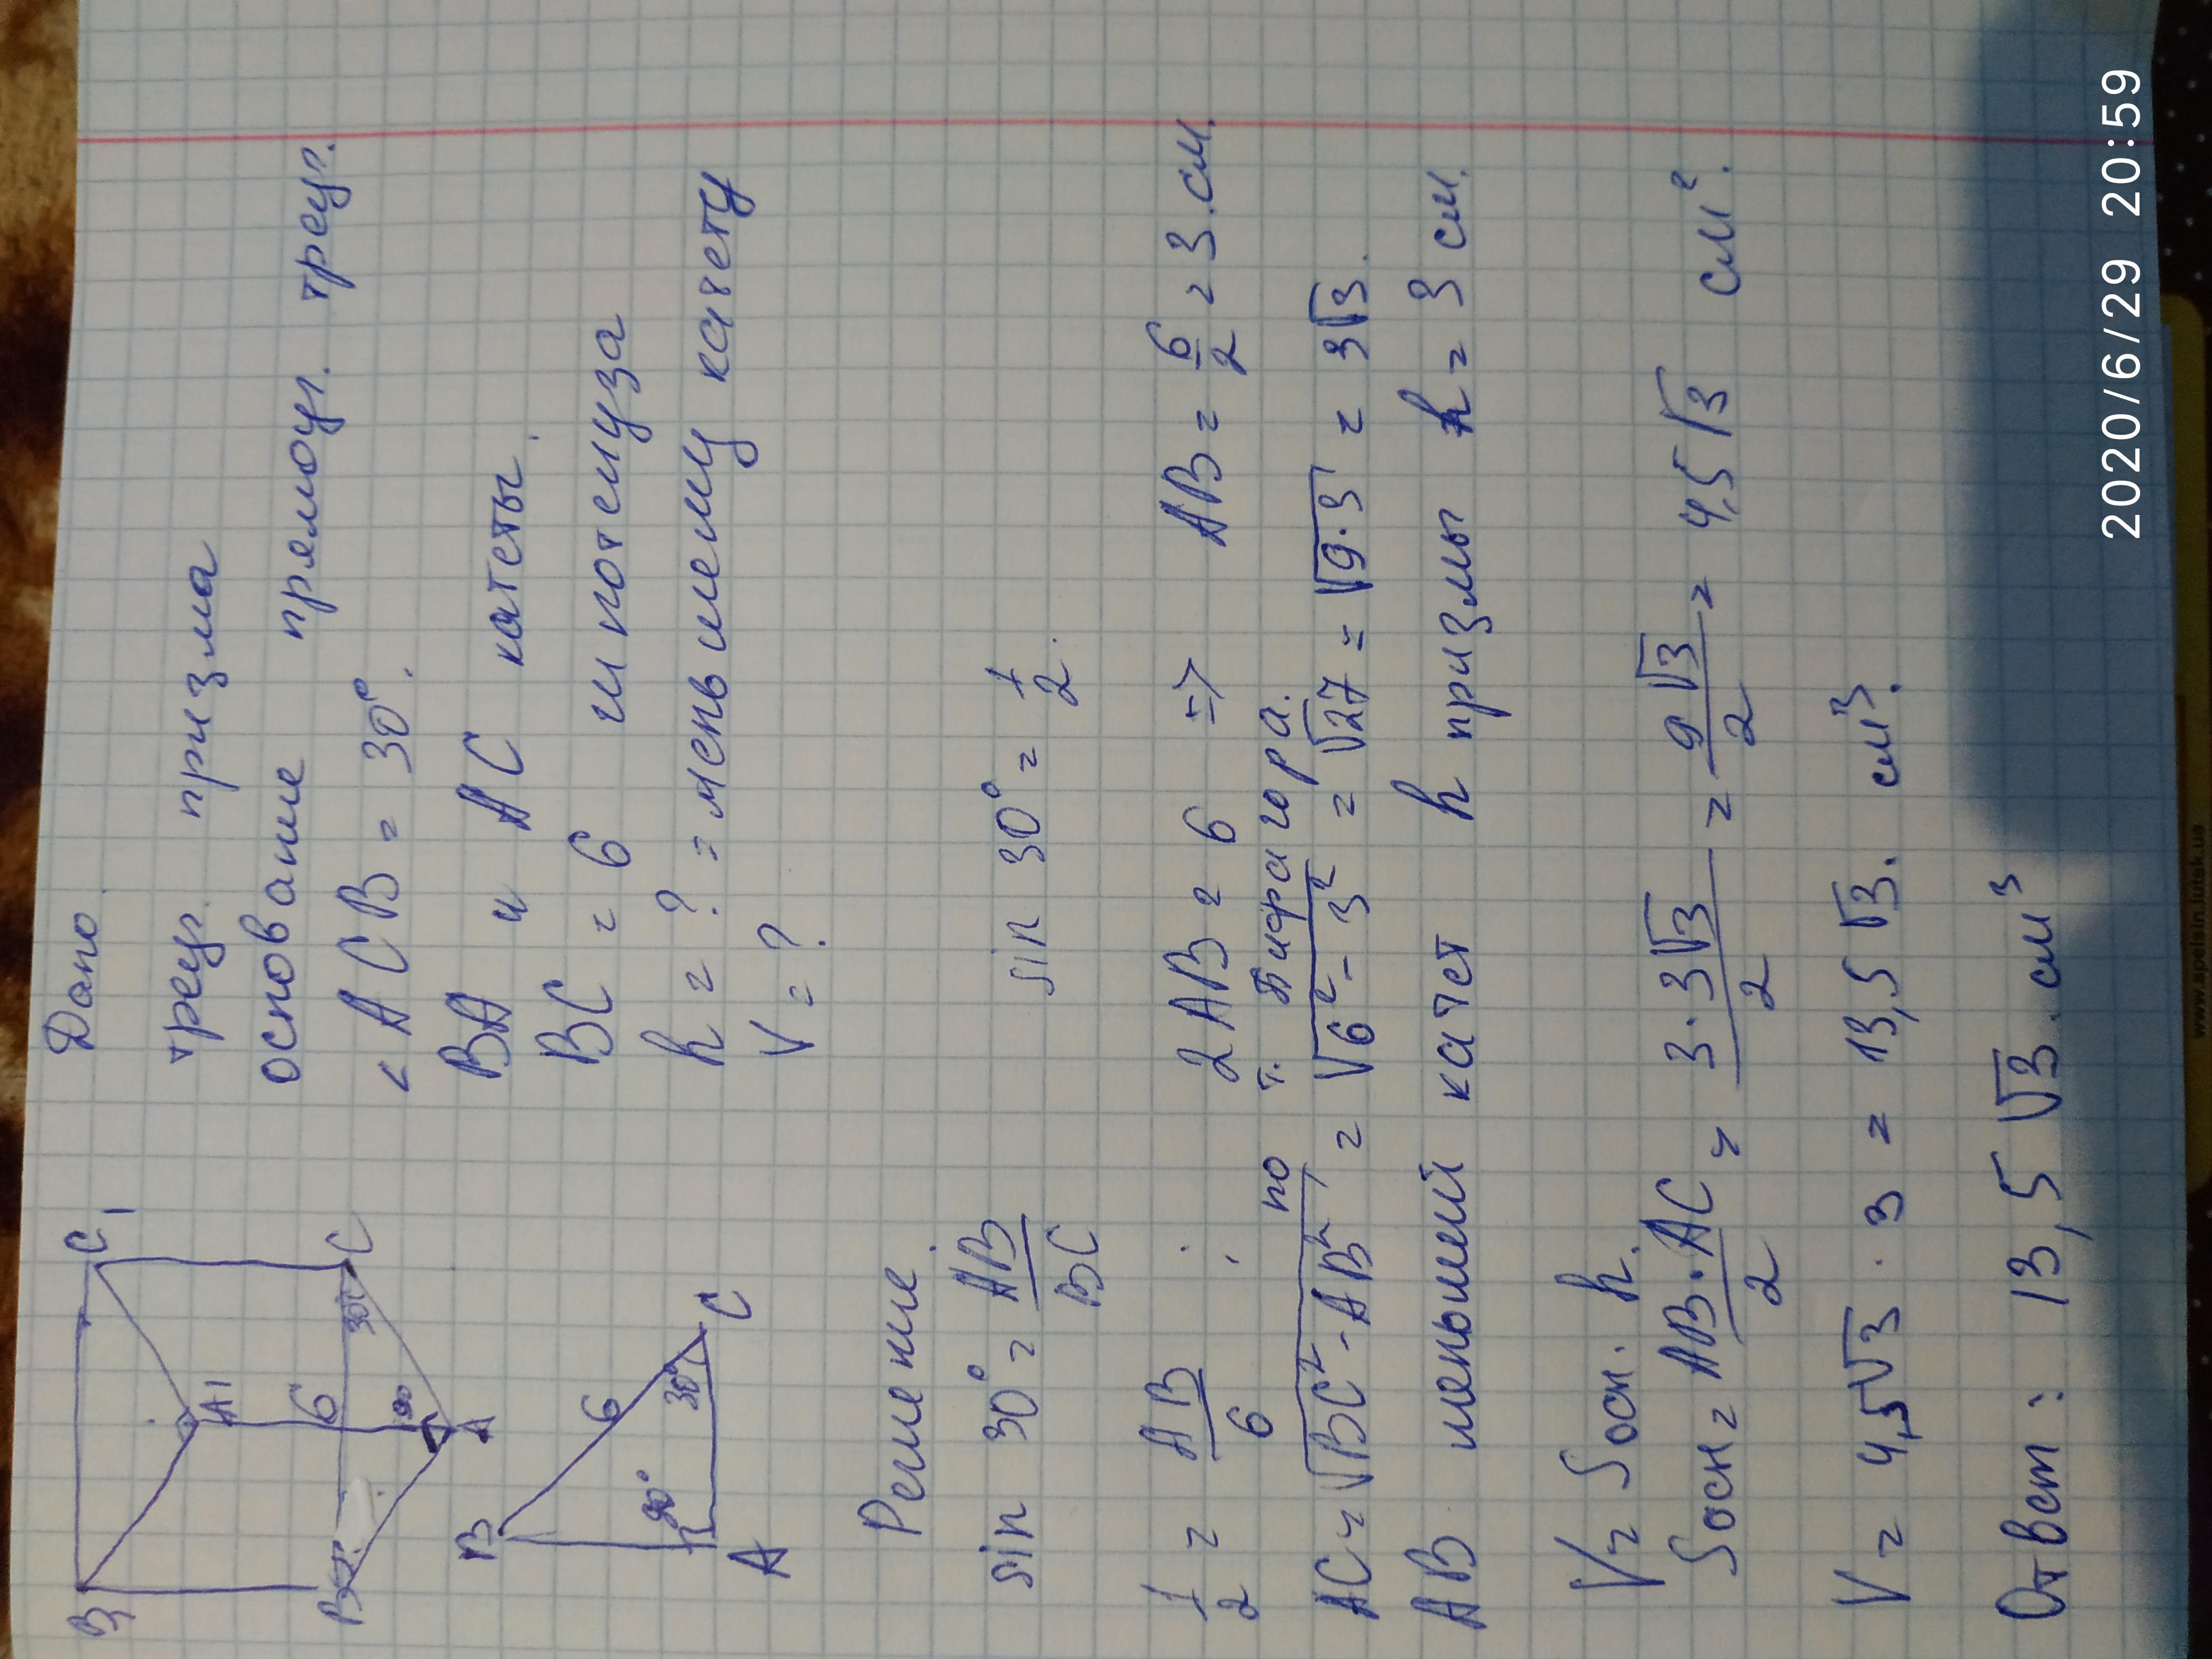 Дано
треуг. призма
основание прямоуг. треуг.
< ACB = 30°.
BA и AC катеты.
BC = 6 гипотенуза
h = ? = меньшему катету
V = ?
B1
C1
A1
6
B
30°
C
90°
A
B
6
90°
30°
A
C
Решение.
sin 30° = AB/BC sin 30° = 1/2.
1/2 = AB/6 ; 2AB = 6 => AB = 6/2 = 3 см.
по т. Пифагора.
AC = √(BC² - AB²) = √(6² - 3²) = √27 = √(9·3) = 3√3.
AB меньший катет h призмы h = 3 см.
V = Sосн. h.
Sосн = AB·AC/2 = 3·3√3/2 = 9√3/2 = 4,5√3 см².
V = 4,5√3 · 3 = 13,5√3. см³.
Ответ: 13,5√3. см³
2020/6/29 20:59
www.apelsin.lutsk.ua